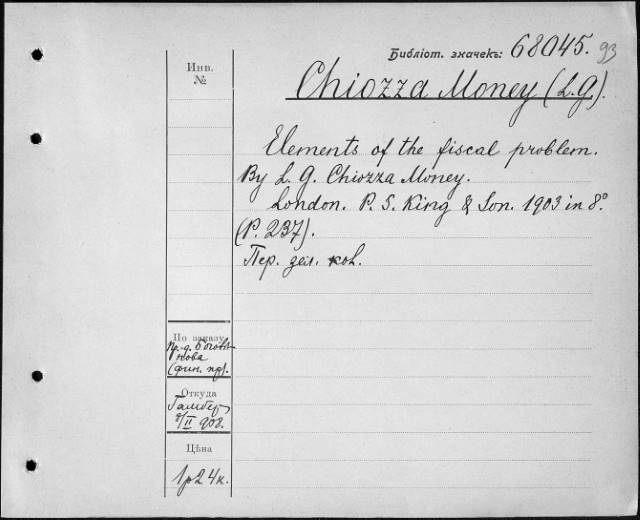 Библіот. значекъ: 68045. 93
Инв.
№
Chiozza Money (L.G.).
Elements of the fiscal problem.
By L. G. Chiozza Money.
London. P. S. King & Son. 1903 in 8°
(P. 237).
Пер. дел. кок.
По заказу
Пр-д. Боголѣ-
нова
(фин. пр).
Откуда
Гамбер
8/II 908.
Цѣна
1р24к.